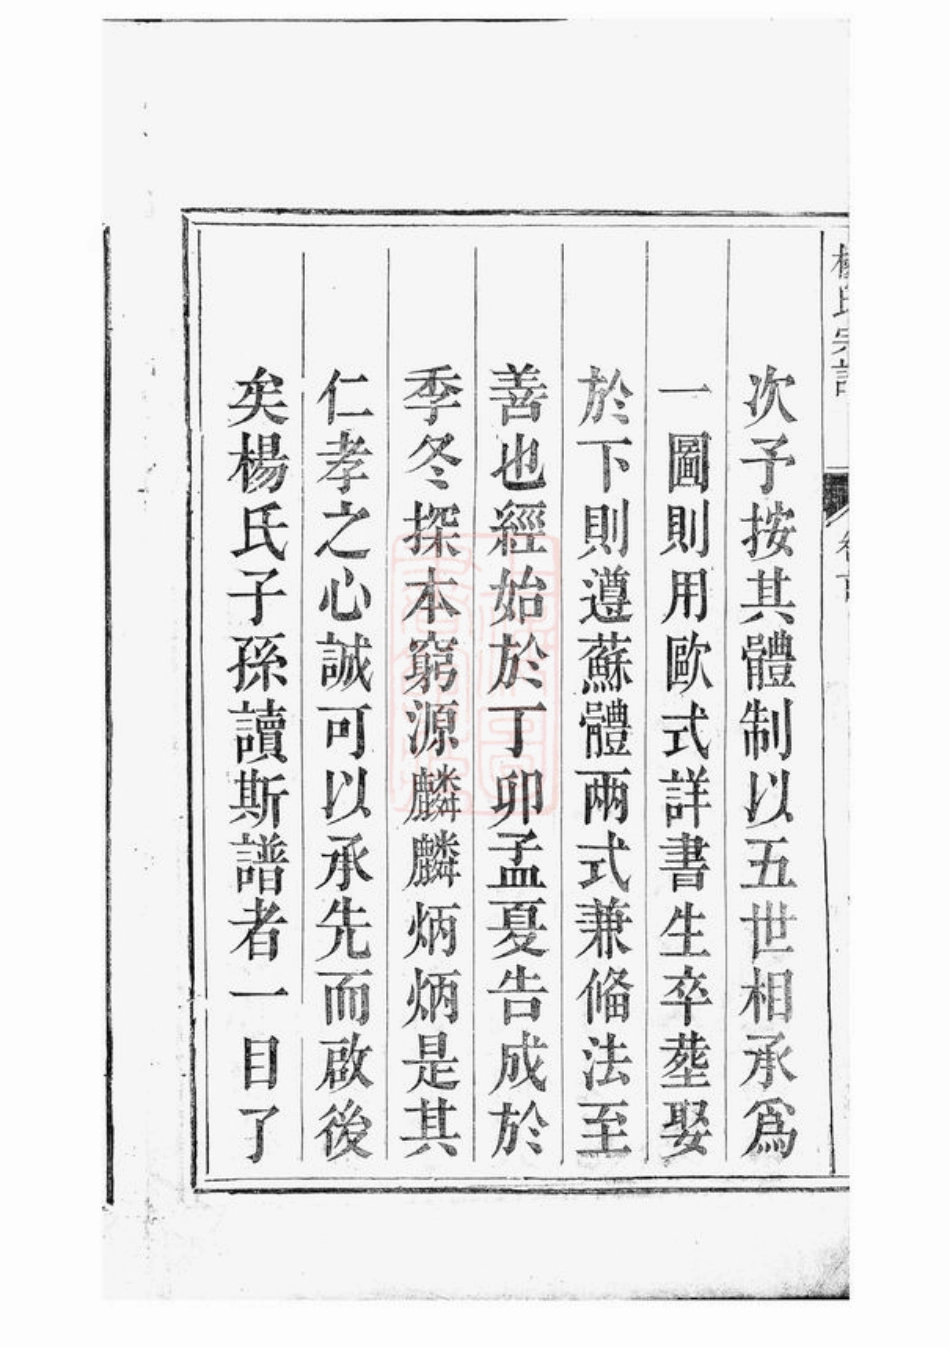 楊氏宗譜
卷首
次予按其體制以五世相承爲
一圖則用歐式詳書生卒塟娶
於下則遵蘇體兩式兼俻法至
善也經始於丁卯孟夏告成於
季冬探本窮源麟麟炳炳是其
仁孝之心誠可以承先而啟後
矣楊氏子孫讀斯譜者一目了